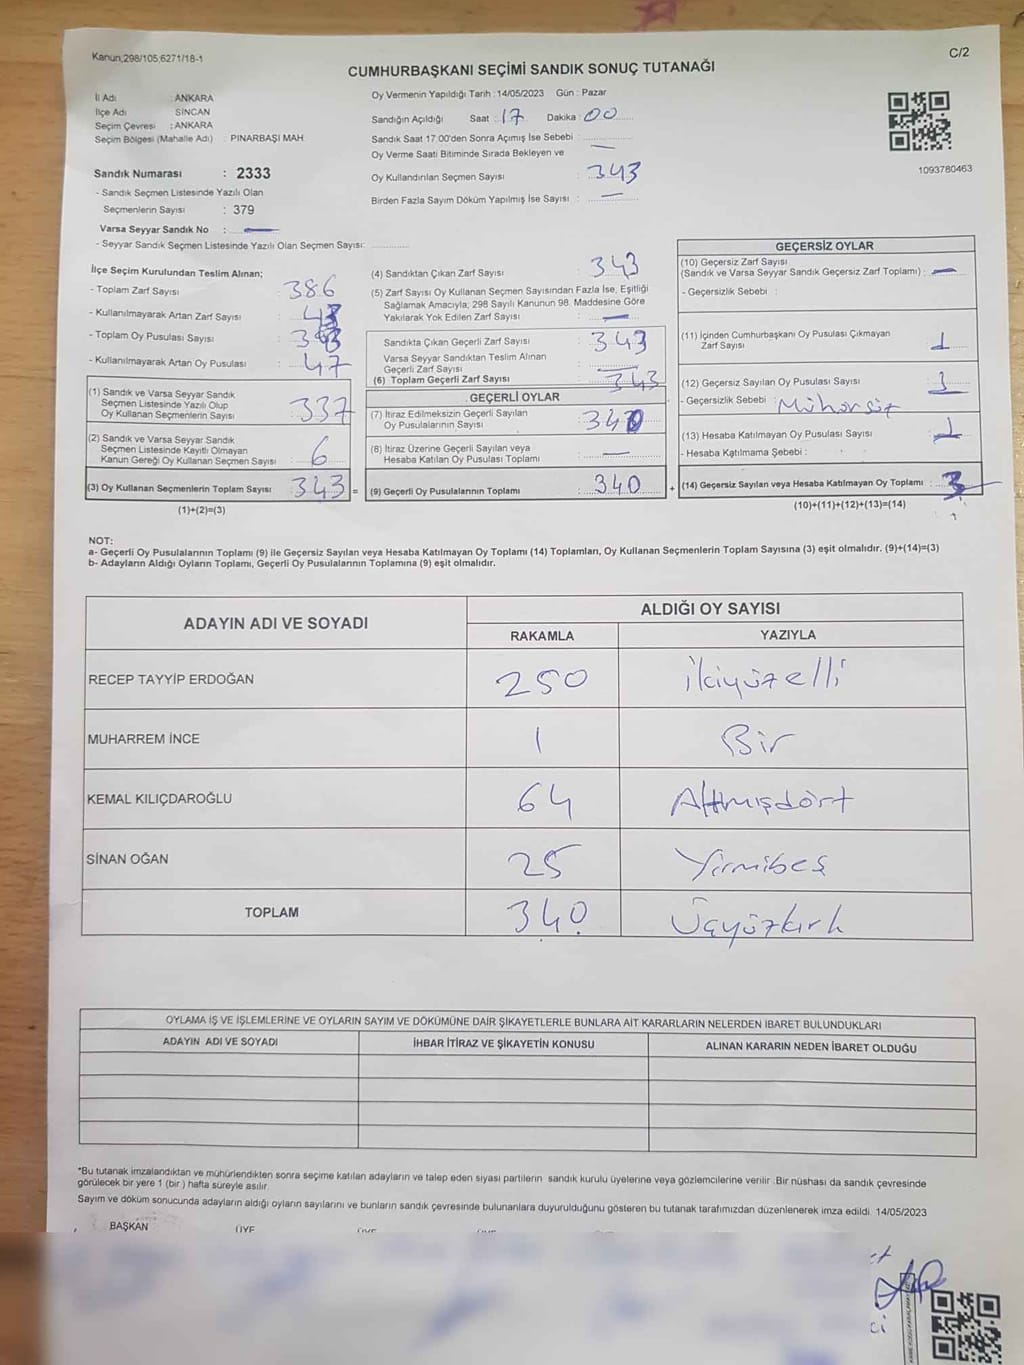 Kanun;298/105;6271/18-1
C/2
CUMHURBAŞKANI SEÇİMİ SANDIK SONUÇ TUTANAĞI
İl Adı : ANKARA
İlçe Adı : SİNCAN
Seçim Çevresi : ANKARA
Seçim Bölgesi (Mahalle Adı) : PINARBAŞI MAH.
Sandık Numarası : 2333
- Sandık Seçmen Listesinde Yazılı Olan
Seçmenlerin Sayısı : 379
Varsa Seyyar Sandık No : —
- Seyyar Sandık Seçmen Listesinde Yazılı Olan Seçmen Sayısı:
Oy Vermenin Yapıldığı Tarih : 14/05/2023 Gün : Pazar
Sandığın Açıldığı Saat : 17 Dakika : 00
Sandık Saat 17:00'den Sonra Açımış İse Sebebi :
Oy Verme Saati Bitiminde Sırada Bekleyen ve —
Oy Kullandırılan Seçmen Sayısı : 343
Birden Fazla Sayım Döküm Yapılmış İse Sayısı : —
1093780463
İlçe Seçim Kurulundan Teslim Alınan;
- Toplam Zarf Sayısı : 386
- Kullanılmayarak Artan Zarf Sayısı : 43
- Toplam Oy Pusulası Sayısı :
- Kullanılmayarak Artan Oy Pusulası : 47
(1) Sandık ve Varsa Seyyar Sandık
Seçmen Listesinde Yazılı Olup
Oy Kullanan Seçmenlerin Sayısı : 337
(2) Sandık ve Varsa Seyyar Sandık
Seçmen Listesinde Kayıtlı Olmayan
Kanun Gereği Oy Kullanan Seçmen Sayısı : 6
(3) Oy Kullanan Seçmenlerin Toplam Sayısı : 343 =
(1)+(2)=(3)
(4) Sandıktan Çıkan Zarf Sayısı : 343
(5) Zarf Sayısı Oy Kullanan Seçmen Sayısından Fazla İse, Eşitliği
Sağlamak Amacıyla; 298 Sayılı Kanunun 98. Maddesine Göre
Yakılarak Yok Edilen Zarf Sayısı : —
Sandıkta Çıkan Geçerli Zarf Sayısı : 343
Varsa Seyyar Sandıktan Teslim Alınan
Geçerli Zarf Sayısı : —
(6) Toplam Geçerli Zarf Sayısı : 343
GEÇERLİ OYLAR
(7) İtiraz Edilmeksizin Geçerli Sayılan
Oy Pusulalarının Sayısı : 340
(8) İtiraz Üzerine Geçerli Sayılan veya
Hesaba Katılan Oy Pusulası Toplamı : —
(9) Geçerli Oy Pusulalarının Toplamı : 340 +
GEÇERSİZ OYLAR
(10) Geçersiz Zarf Sayısı
(Sandık ve Varsa Seyyar Sandık Geçersiz Zarf Toplamı) : —
- Geçersizlik Sebebi :
(11) İçinden Cumhurbaşkanı Oy Pusulası Çıkmayan
Zarf Sayısı : 1
(12) Geçersiz Sayılan Oy Pusulası Sayısı : 1
- Geçersizlik Sebebi : Mühürsüz
(13) Hesaba Katılmayan Oy Pusulası Sayısı : 1
- Hesaba Katılmama Şebebi :
(14) Geçersiz Sayılan veya Hesaba Katılmayan Oy Toplamı : 3
(10)+(11)+(12)+(13)=(14)
NOT:
a- Geçerli Oy Pusulalarının Toplamı (9) ile Geçersiz Sayılan veya Hesaba Katılmayan Oy Toplamı (14) Toplamları, Oy Kullanan Seçmenlerin Toplam Sayısına (3) eşit olmalıdır. (9)+(14)=(3)
b- Adayların Aldığı Oyların Toplamı, Geçerli Oy Pusulalarının Toplamına (9) eşit olmalıdır.
ADAYIN ADI VE SOYADI
ALDIĞI OY SAYISI
RAKAMLA YAZIYLA
RECEP TAYYİP ERDOĞAN 250 ikiyüzelli
MUHARREM İNCE 1 Bir
KEMAL KILIÇDAROĞLU 64 Altmışdört
SİNAN OĞAN 25 Yirmibeş
TOPLAM 340 Üçyüzkırk
OYLAMA İŞ VE İŞLEMLERİNE VE OYLARIN SAYIM VE DÖKÜMÜNE DAİR ŞİKAYETLERLE BUNLARA AİT KARARLARIN NELERDEN İBARET BULUNDUKLARI
ADAYIN ADI VE SOYADI İHBAR İTİRAZ VE ŞİKAYETİN KONUSU ALINAN KARARIN NEDEN İBARET OLDUĞU
*Bu tutanak imzalandıktan ve mühürlendikten sonra seçime katılan adayların ve talep eden siyasi partilerin sandık kurulu üyelerine veya gözlemcilerine verilir .Bir nüshası da sandık çevresinde
görülecek bir yere 1 (bir ) hafta süreyle asılır.
Sayım ve döküm sonucunda adayların aldığı oyların sayılarını ve bunların sandık çevresinde bulunanlara duyurulduğunu gösteren bu tutanak tarafımızdan düzenlenerek imza edildi. 14/05/2023
BAŞKAN ÜYE